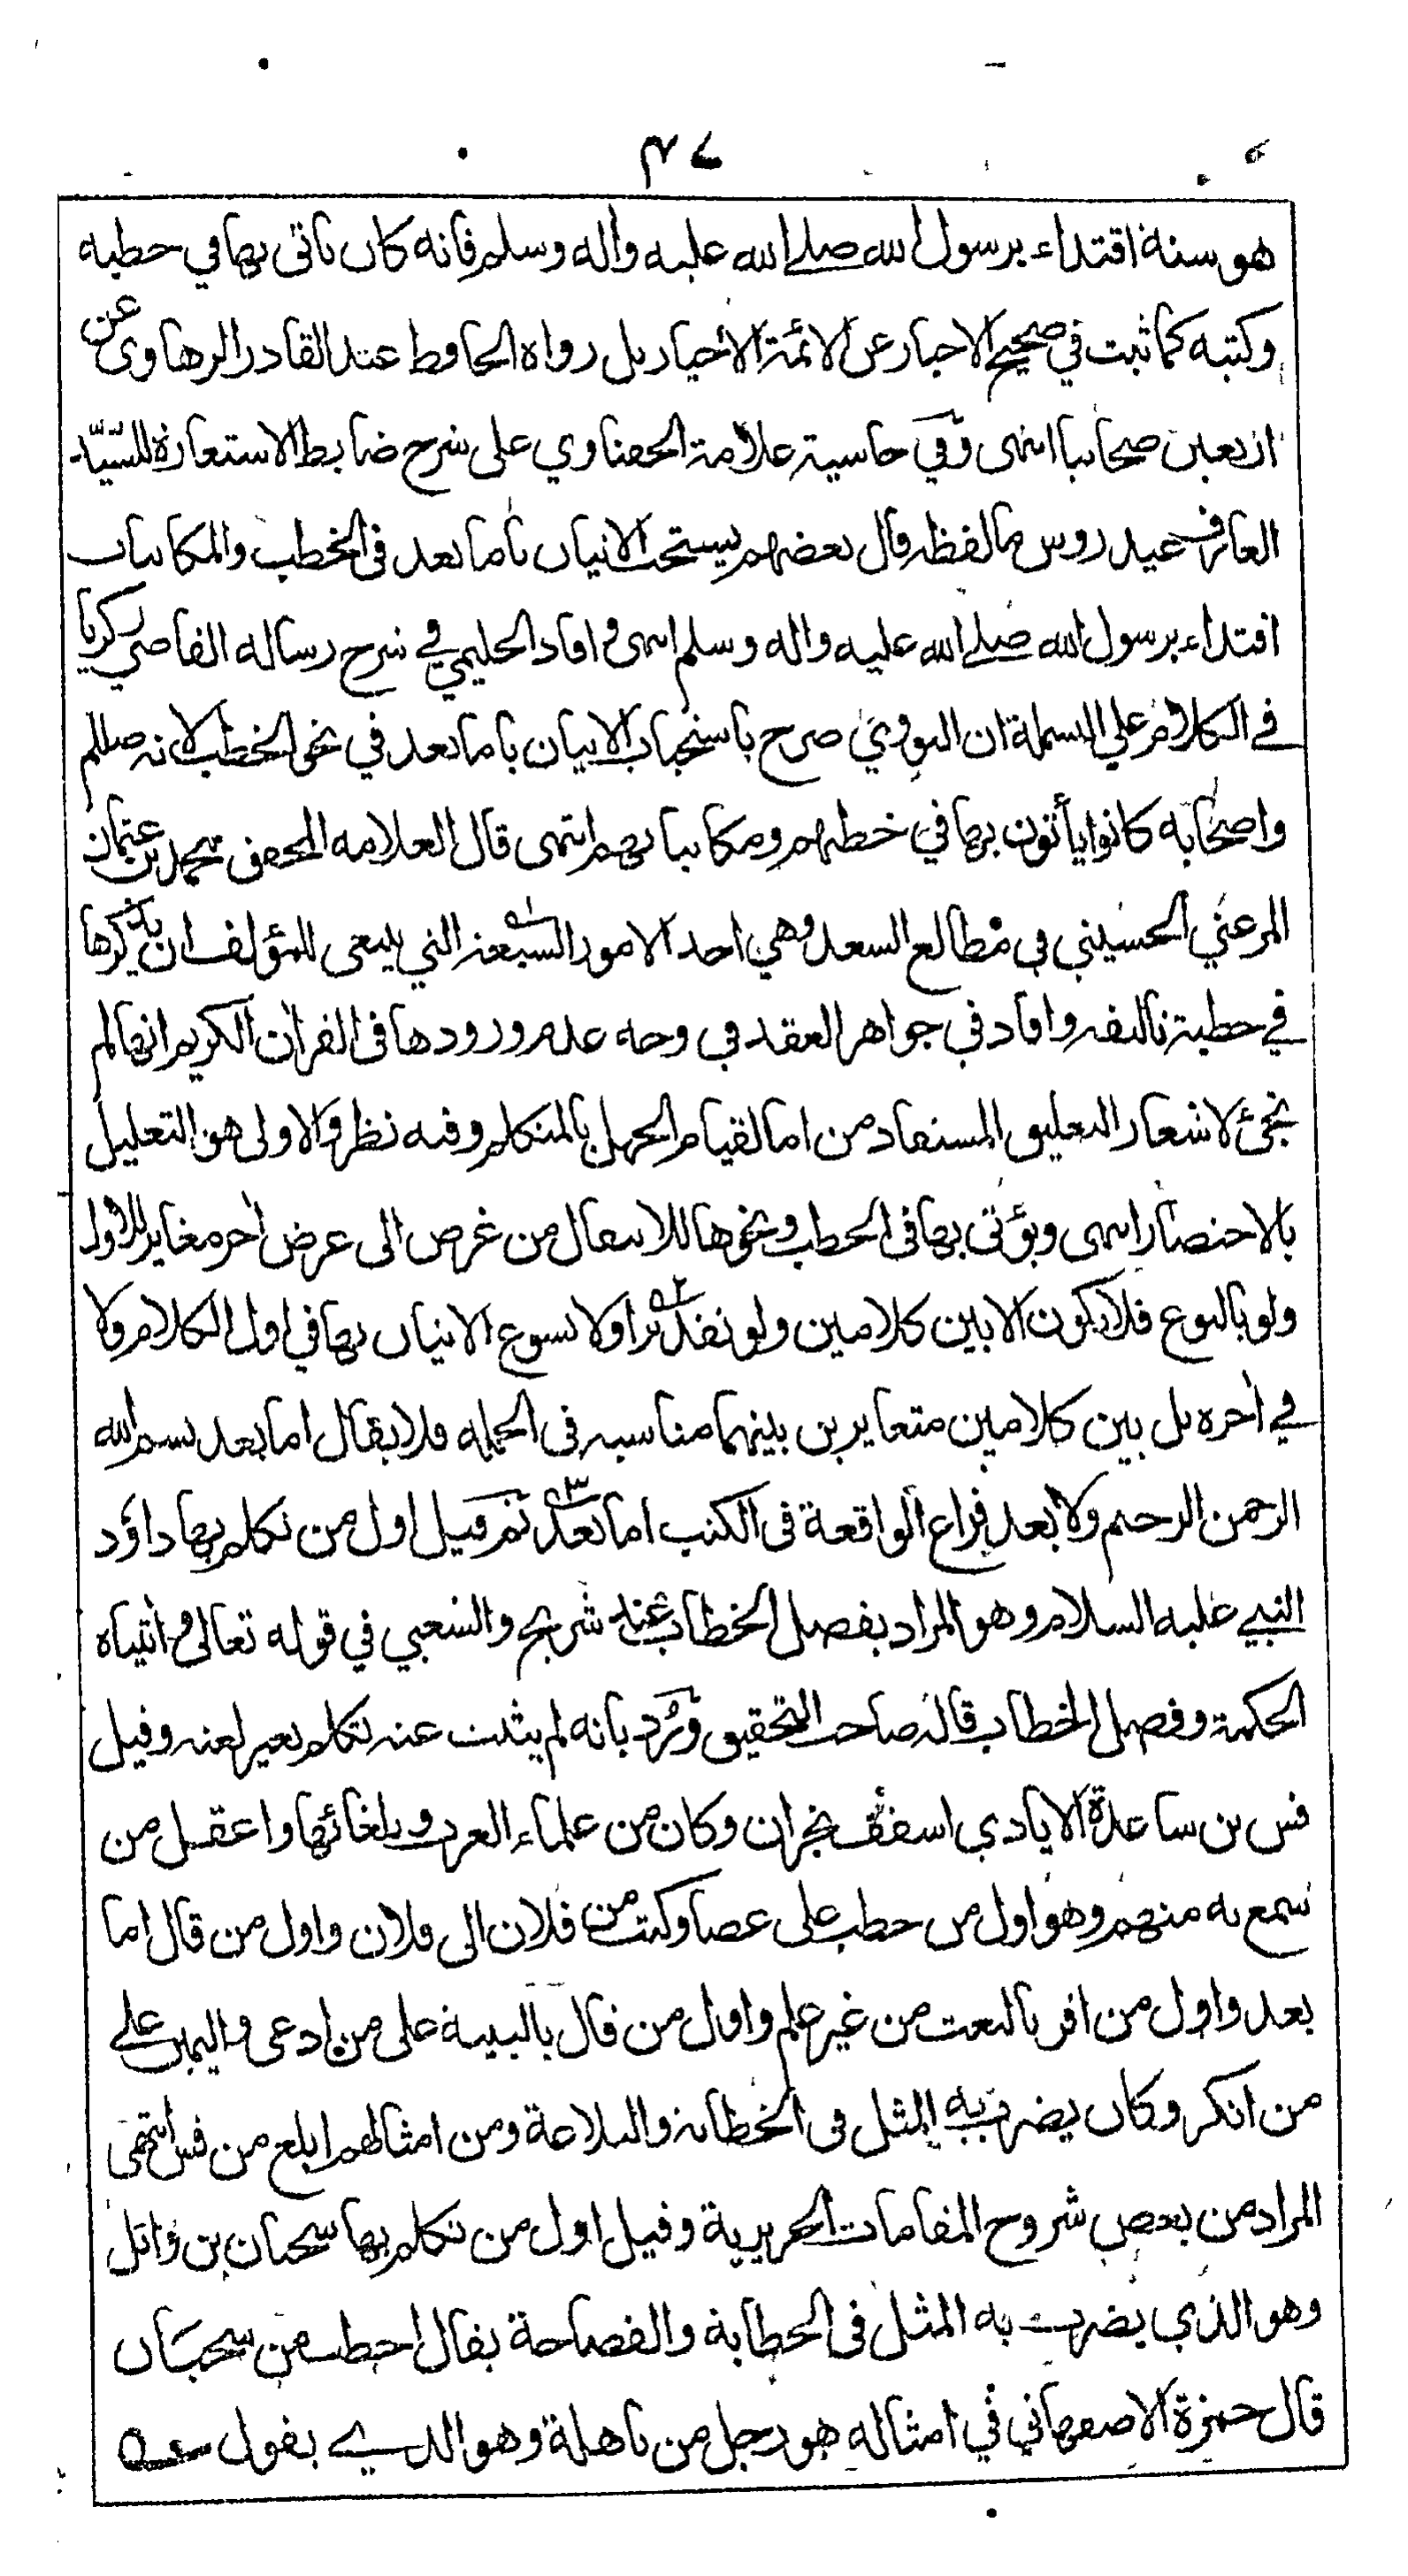 ٣٧
هو سنة اقتداء برسول الله صلے الله عليه واله وسلم فانه كان ياتى بها في خطبه
وكتبه كما ثبت في صحيح الاخبار عن الائمة الاخيار بل رواه الحافظ عبد القادر الرهاوى عن
اربعين صحابيا انتهى وفي حاشية علامة الحفناوي على شرح ضابط الاستعارة للسيّد
العارف عيدروس ما لفظه قال بعضهم يستحب الاتيان باما بعد فى الخطب والمكاتبات
اقتداء برسول الله صلے الله عليه واله وسلم انتهى وافاد الحليمي في شرح رساله القاضي زكريا
في الكلام علي البسملة ان النووي صرح باستحباب الاتيان باما بعد في نحو الخطب لانه صللم
واصحابه كانوا يأتون بها في خطبهم ومكاتباتهم انتهى قال العلامه المحقق محمد بن عثمان
المرغني الحسيني في مطالع السعد وهي احد الامور السبعة التي ينبغى للمؤلف ان يذكرها
في خطبة تاليفه وافاد في جواهر العقد في وجه عدم ورودها فى القران الكريم انها لم
تجئ لاشعار التعليق المستفاد من اما لقيام الجهل بالمتكلم وفيه نظر والاولى هو التعليل
بالاختصار انتهى ويؤتى بها فى الخطب ونحوها للانتقال من غرض الى غرض اخر مغاير للاول
ولو بالنوع فلا يكون الا بين كلامين ولو تقديرا ولا يسوغ الاتيان بها في اول الكلام ولا
في اخره بل بين كلامين متغايرين بينهما مناسبه فى الجمله فلا يقال اما بعد بسم الله
الرحمن الرحيم ولا بعد فراغ الواقعة فى الكتب اما بعد ثم قيل اول من تكلم بها داؤد
النبي عليه السلام وهو المراد بفصل الخطاب عند شريح والشعبي في قوله تعالى واتيناه
الحكمة وفصل الخطاب قاله صاحب التحقيق ورُد بانه لم يثبت عنه تكلم بغير لغته وقيل
قس بن ساعدة الايادي اسقف نجران وكان من علماء العرب وبلغائها واعقل من
سمع به منهم وهو اول من خطب على عصا وكتب من فلان الى فلان واول من قال اما
بعد واول من اقر بالبعث من غير علم واول من قال بالبينة على من ادعى واليمين علے
من انكر وكان يضرب به المثل فى الخطابه والبلاغة ومن امثالهم ابلغ من قس انتهى
المراد من بعض شروح المقامات الحريرية وقيل اول من تكلم بها سحبان بن وائل
وهو الذي يضرب به المثل فى الخطابة والفصاحة يقال اخطب من سحبان
قال حمزة الاصفهاني في امثاله هو رجل من باهلة وهو الذي يقول